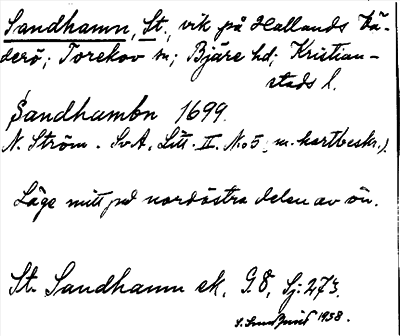 Sandhamn, St., vik på Hallands Vä-
derö; Torekov sn; Bjäre hd; Kristian-
stads l.
Sandhambn 1699.
N. Ström. SvA, Litt. II. No 5, m. kartbeskr.).
Läge mitt på nordöstra delen av ön.
St. Sandhamn ek. G.8, Sj: 273.
1958.